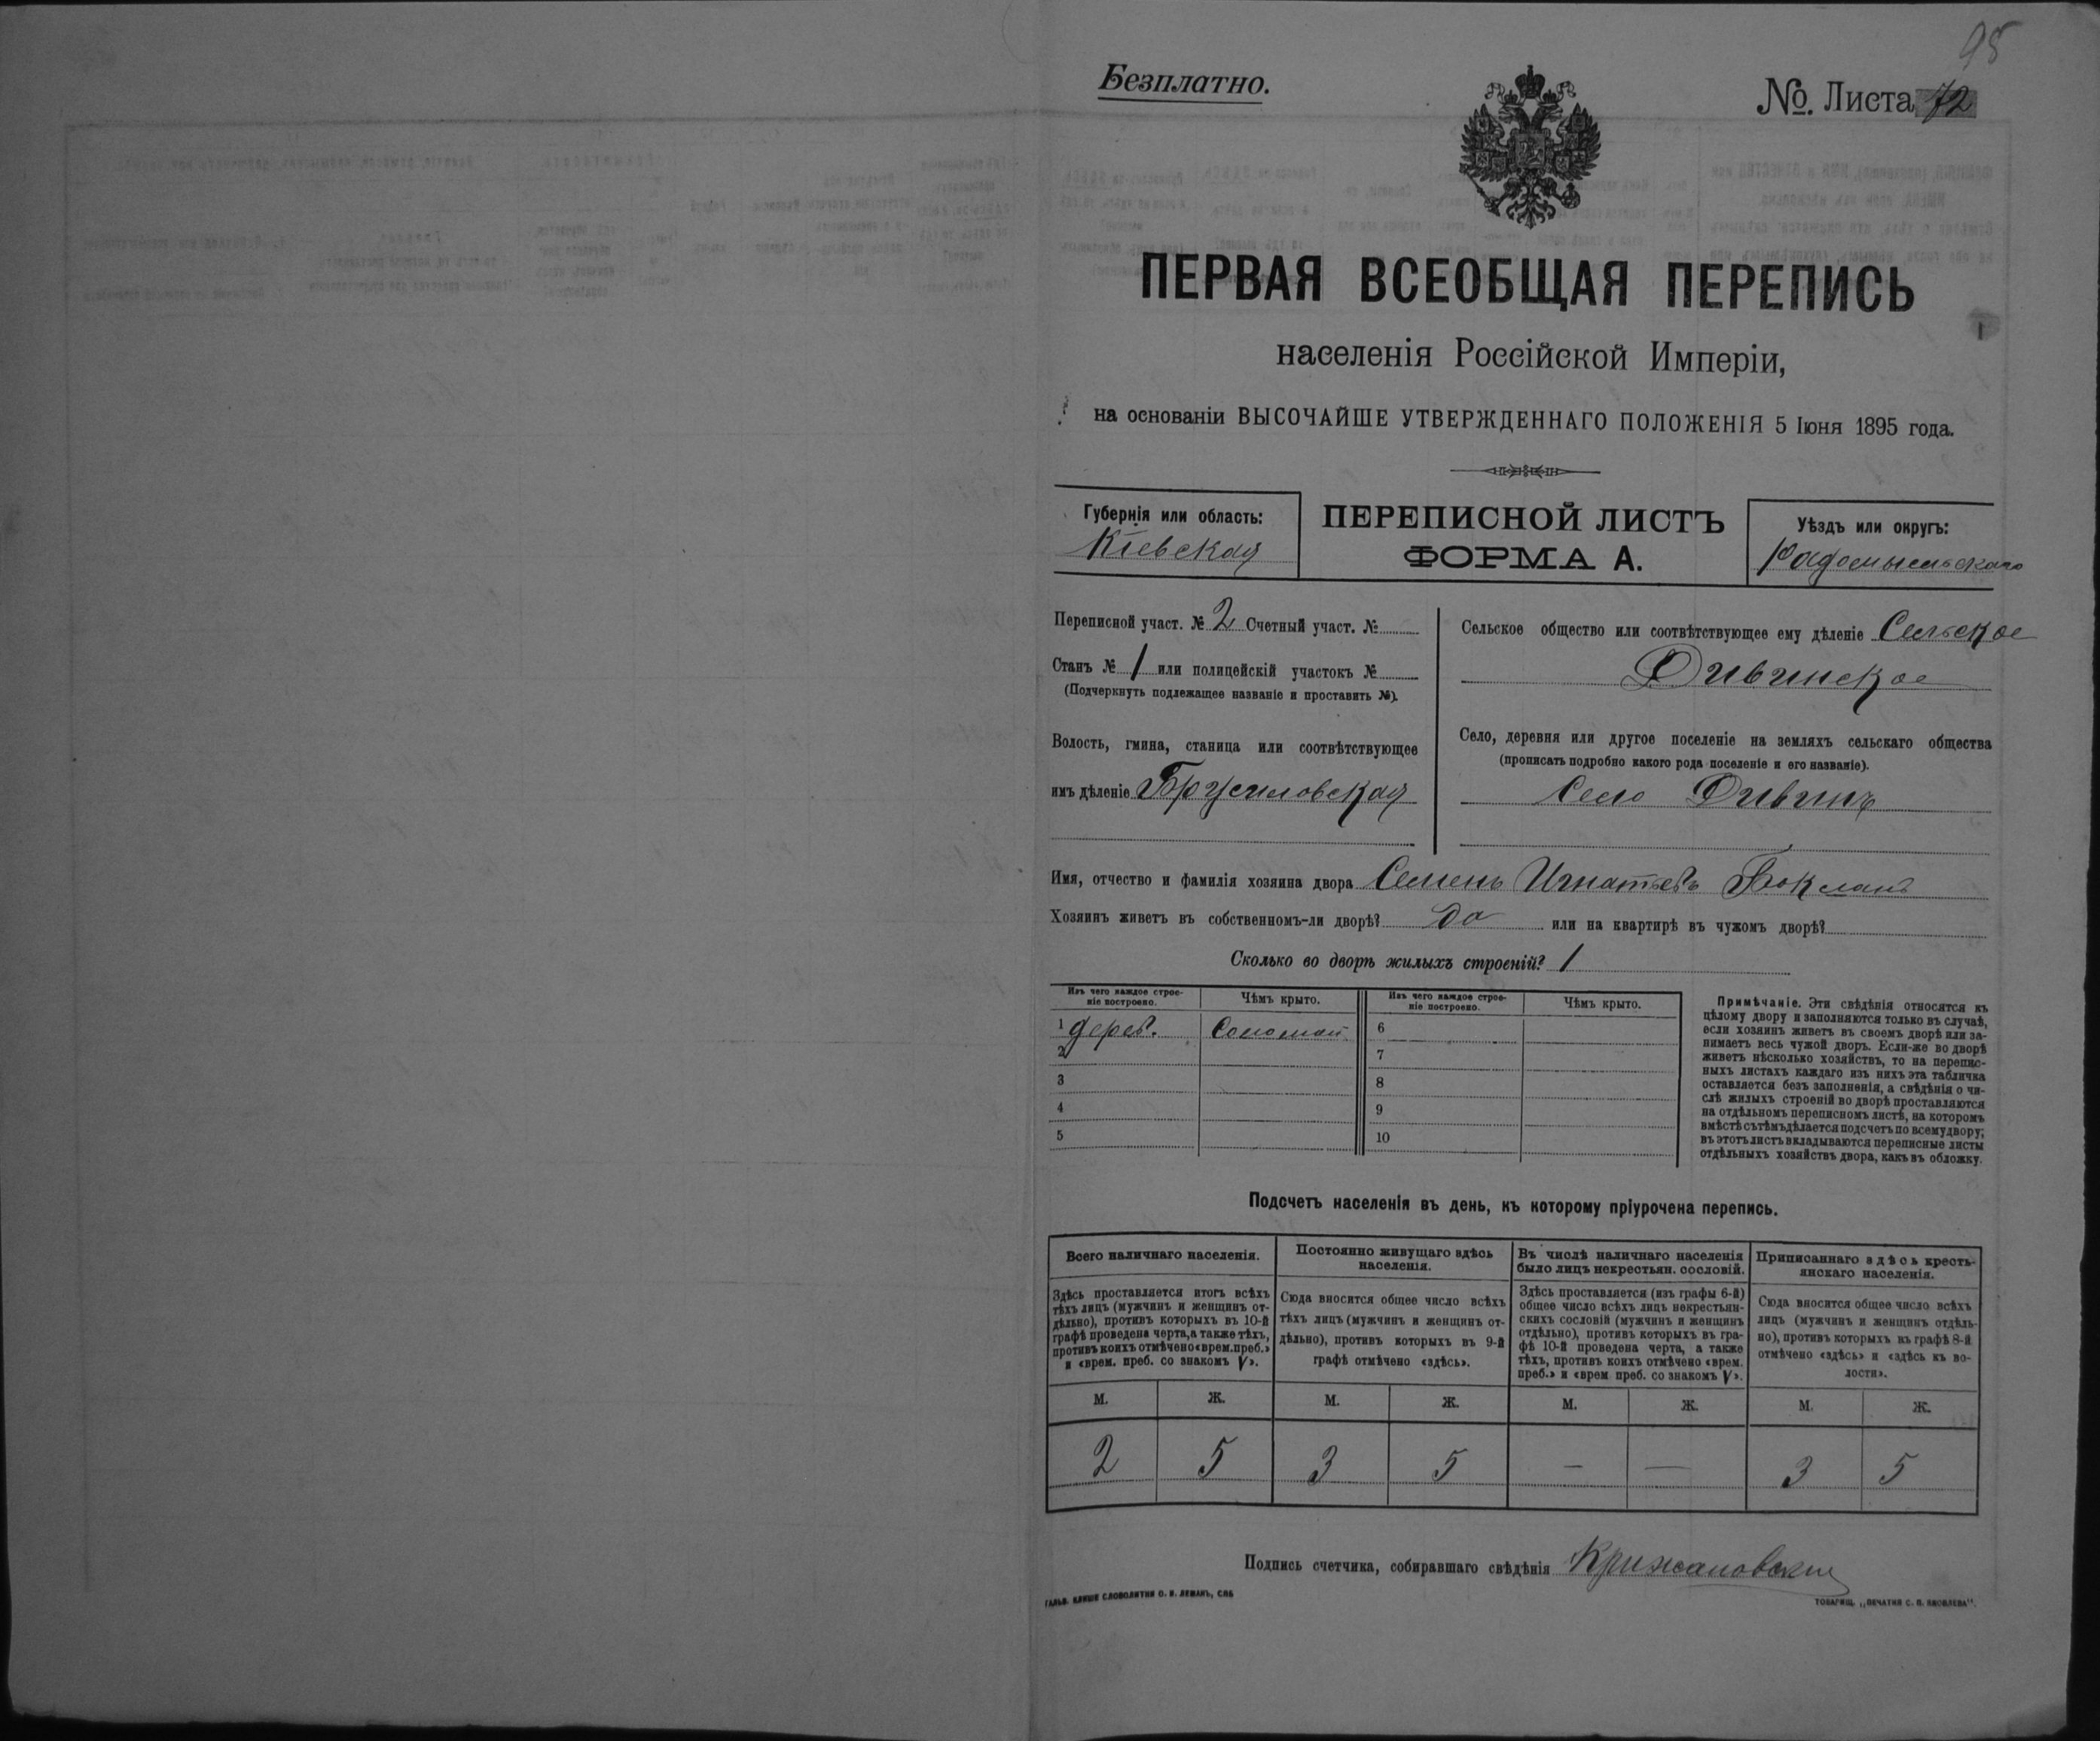 95
Безплатно.
№. Листа 72
ПЕРВАЯ ВСЕОБЩАЯ ПЕРЕПИСЬ
населенія Россійской Имперіи,
на основаніи ВЫСОЧАЙШЕ УТВЕРЖДЕННАГО ПОЛОЖЕНІЯ 5 Іюня 1895 года.
Губернія или область:
Кіевская
ПЕРЕПИСНОЙ ЛИСТЪ
ФОРМА А.
Уѣздъ или округъ:
Радомысльскаго
Переписной участ. № 2 Счетный участ. №
Станъ № 1 или полицейскій участокъ №
(Подчеркнуть подлежащее названіе и проставить №).
Волость, гмина, станица или соотвѣтствующее
имъ дѣленіе Брусиловская
Сельское общество или соотвѣтствующее ему дѣленіе Сельское
Дивинское
Село, деревня или другое поселеніе на земляхъ сельскаго общества
(прописать подробно какого рода поселеніе и его названіе).
Село Дивинъ
Имя, отчество и фамилія хозяина двора Семенъ Игнатьевъ Бокланъ
Хозяинъ живетъ въ собственномъ-ли дворѣ? Да или на квартирѣ въ чужомъ дворѣ?
Сколько во дворѣ жилыхъ строеній? 1
Изъ чего каждое строе-
ніе построено.
Чѣмъ крыто.
Изъ чего каждое строе-
ніе построено.
Чѣмъ крыто.
1 дерев. Соломой 6
2 7
3 8
4 9
5 10
Примѣчаніе. Эти свѣдѣнія относятся къ
цѣлому двору и заполняются только въ случаѣ,
если хозяинъ живетъ въ своемъ дворѣ или за-
нимаетъ весь чужой дворъ. Если-же во дворѣ
живетъ нѣсколько хозяйствъ, то на перепис-
ныхъ листахъ каждаго изъ нихъ эта табличка
оставляется безъ заполненія, а свѣдѣнія о чи-
слѣ жилыхъ строеній во дворѣ проставляются
на отдѣльномъ переписномъ листѣ, на которомъ
вмѣстѣ съ тѣмъ дѣлается подсчетъ по всему двору;
въ этотъ листъ вкладываются переписные листы
отдѣльныхъ хозяйствъ двора, какъ въ обложку.
Подсчетъ населенія въ день, къ которому пріурочена перепись.
Всего наличнаго населенія.
Здѣсь проставляется итогъ всѣхъ
тѣхъ лицъ (мужчинъ и женщинъ от-
дѣльно), противъ которыхъ въ 10-й
графѣ проведена черта, а также тѣхъ,
противъ коихъ отмѣчено «врем. преб.»
и «врем. преб. со знакомъ V».
Постоянно живущаго здѣсь
населенія.
Сюда вносится общее число всѣхъ
тѣхъ лицъ (мужчинъ и женщинъ от-
дѣльно), противъ которыхъ въ 9-й
графѣ отмѣчено «здѣсь».
Въ числѣ наличнаго населенія
было лицъ некрестьян. сословій.
Здѣсь проставляется (изъ графы 6-й)
общее число всѣхъ лицъ некрестьян-
скихъ сословій (мужчинъ и женщинъ
отдѣльно), противъ которыхъ въ гра-
фѣ 10-й проведена черта, а также
тѣхъ, противъ коихъ отмѣчено «врем.
преб.» и «врем преб. со знакомъ V».
Приписаннаго здѣсь кресть-
янскаго населенія.
Сюда вносится общее число всѣхъ
лицъ (мужчинъ и женщинъ отдѣль-
но), противъ которыхъ въ графѣ 8-й
отмѣчено «здѣсь» и «здѣсь къ во-
лости».
М. Ж. М. Ж. М. Ж. М. Ж.
2 5 3 5 — — 3 5
Подпись счетчика, собиравшаго свѣдѣнія Крижановскій
ГАЛЬВ. КЛИШЕ СЛОВОЛИТНИ О. И. ЛЕМАНЪ, СПБ
ТОВАРИЩ. „ПЕЧАТНЯ С. П. ЯКОВЛЕВА".